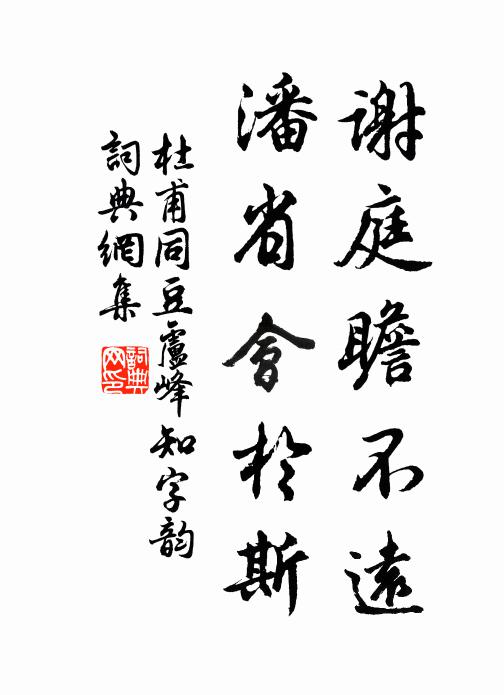 謝庭瞻不遠
潘省會於斯
杜甫同豆盧峰知字韵
詞典網集
詞典
网印